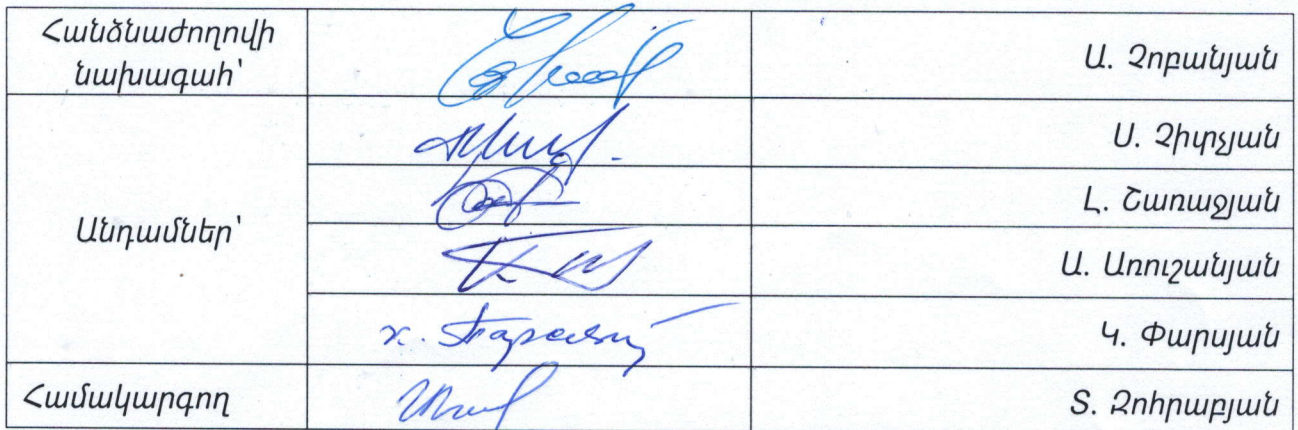 Հանձնաժողովի
նախագահ՝
Ա. Չոբանյան
Անդամներ՝
Ս. Չիլոյան
Լ. Շառաջյան
Ա. Առուշանյան
Կ. Փարսյան
Համակարգող
Տ. Զոհրաբյան